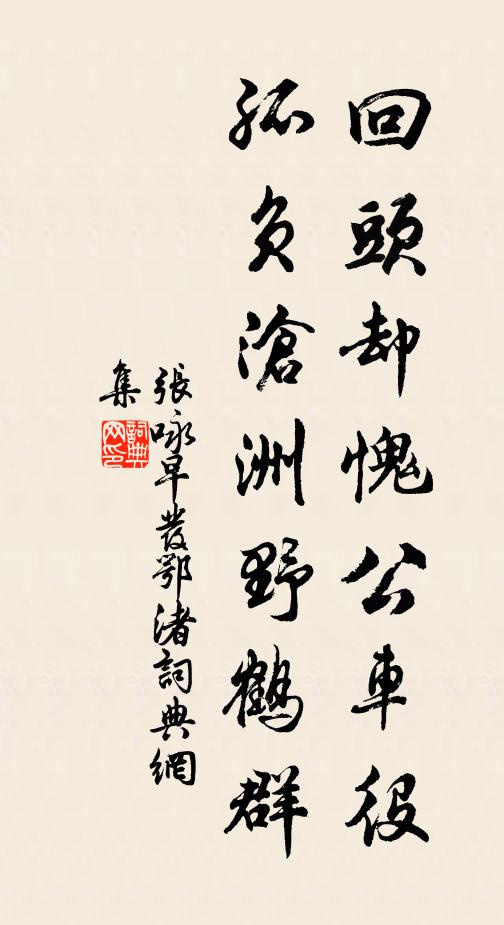 回頭却愧公車役
孤負滄洲野鶴群
張咏早發鄂渚詞典網
集
詞典
网印